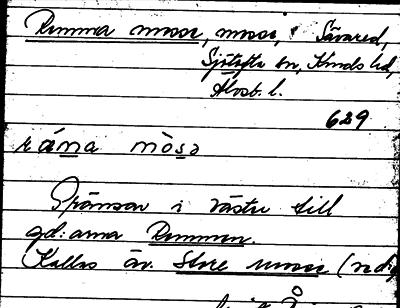 Remma mosse, mosse, i Sävared,
Sjötofta sn, Kinds hd,
Älvsb. l.
629
räna mòsə
Gränsar i väster till
gd:arna Remmen.
Kallas äv. Store mosse (redig